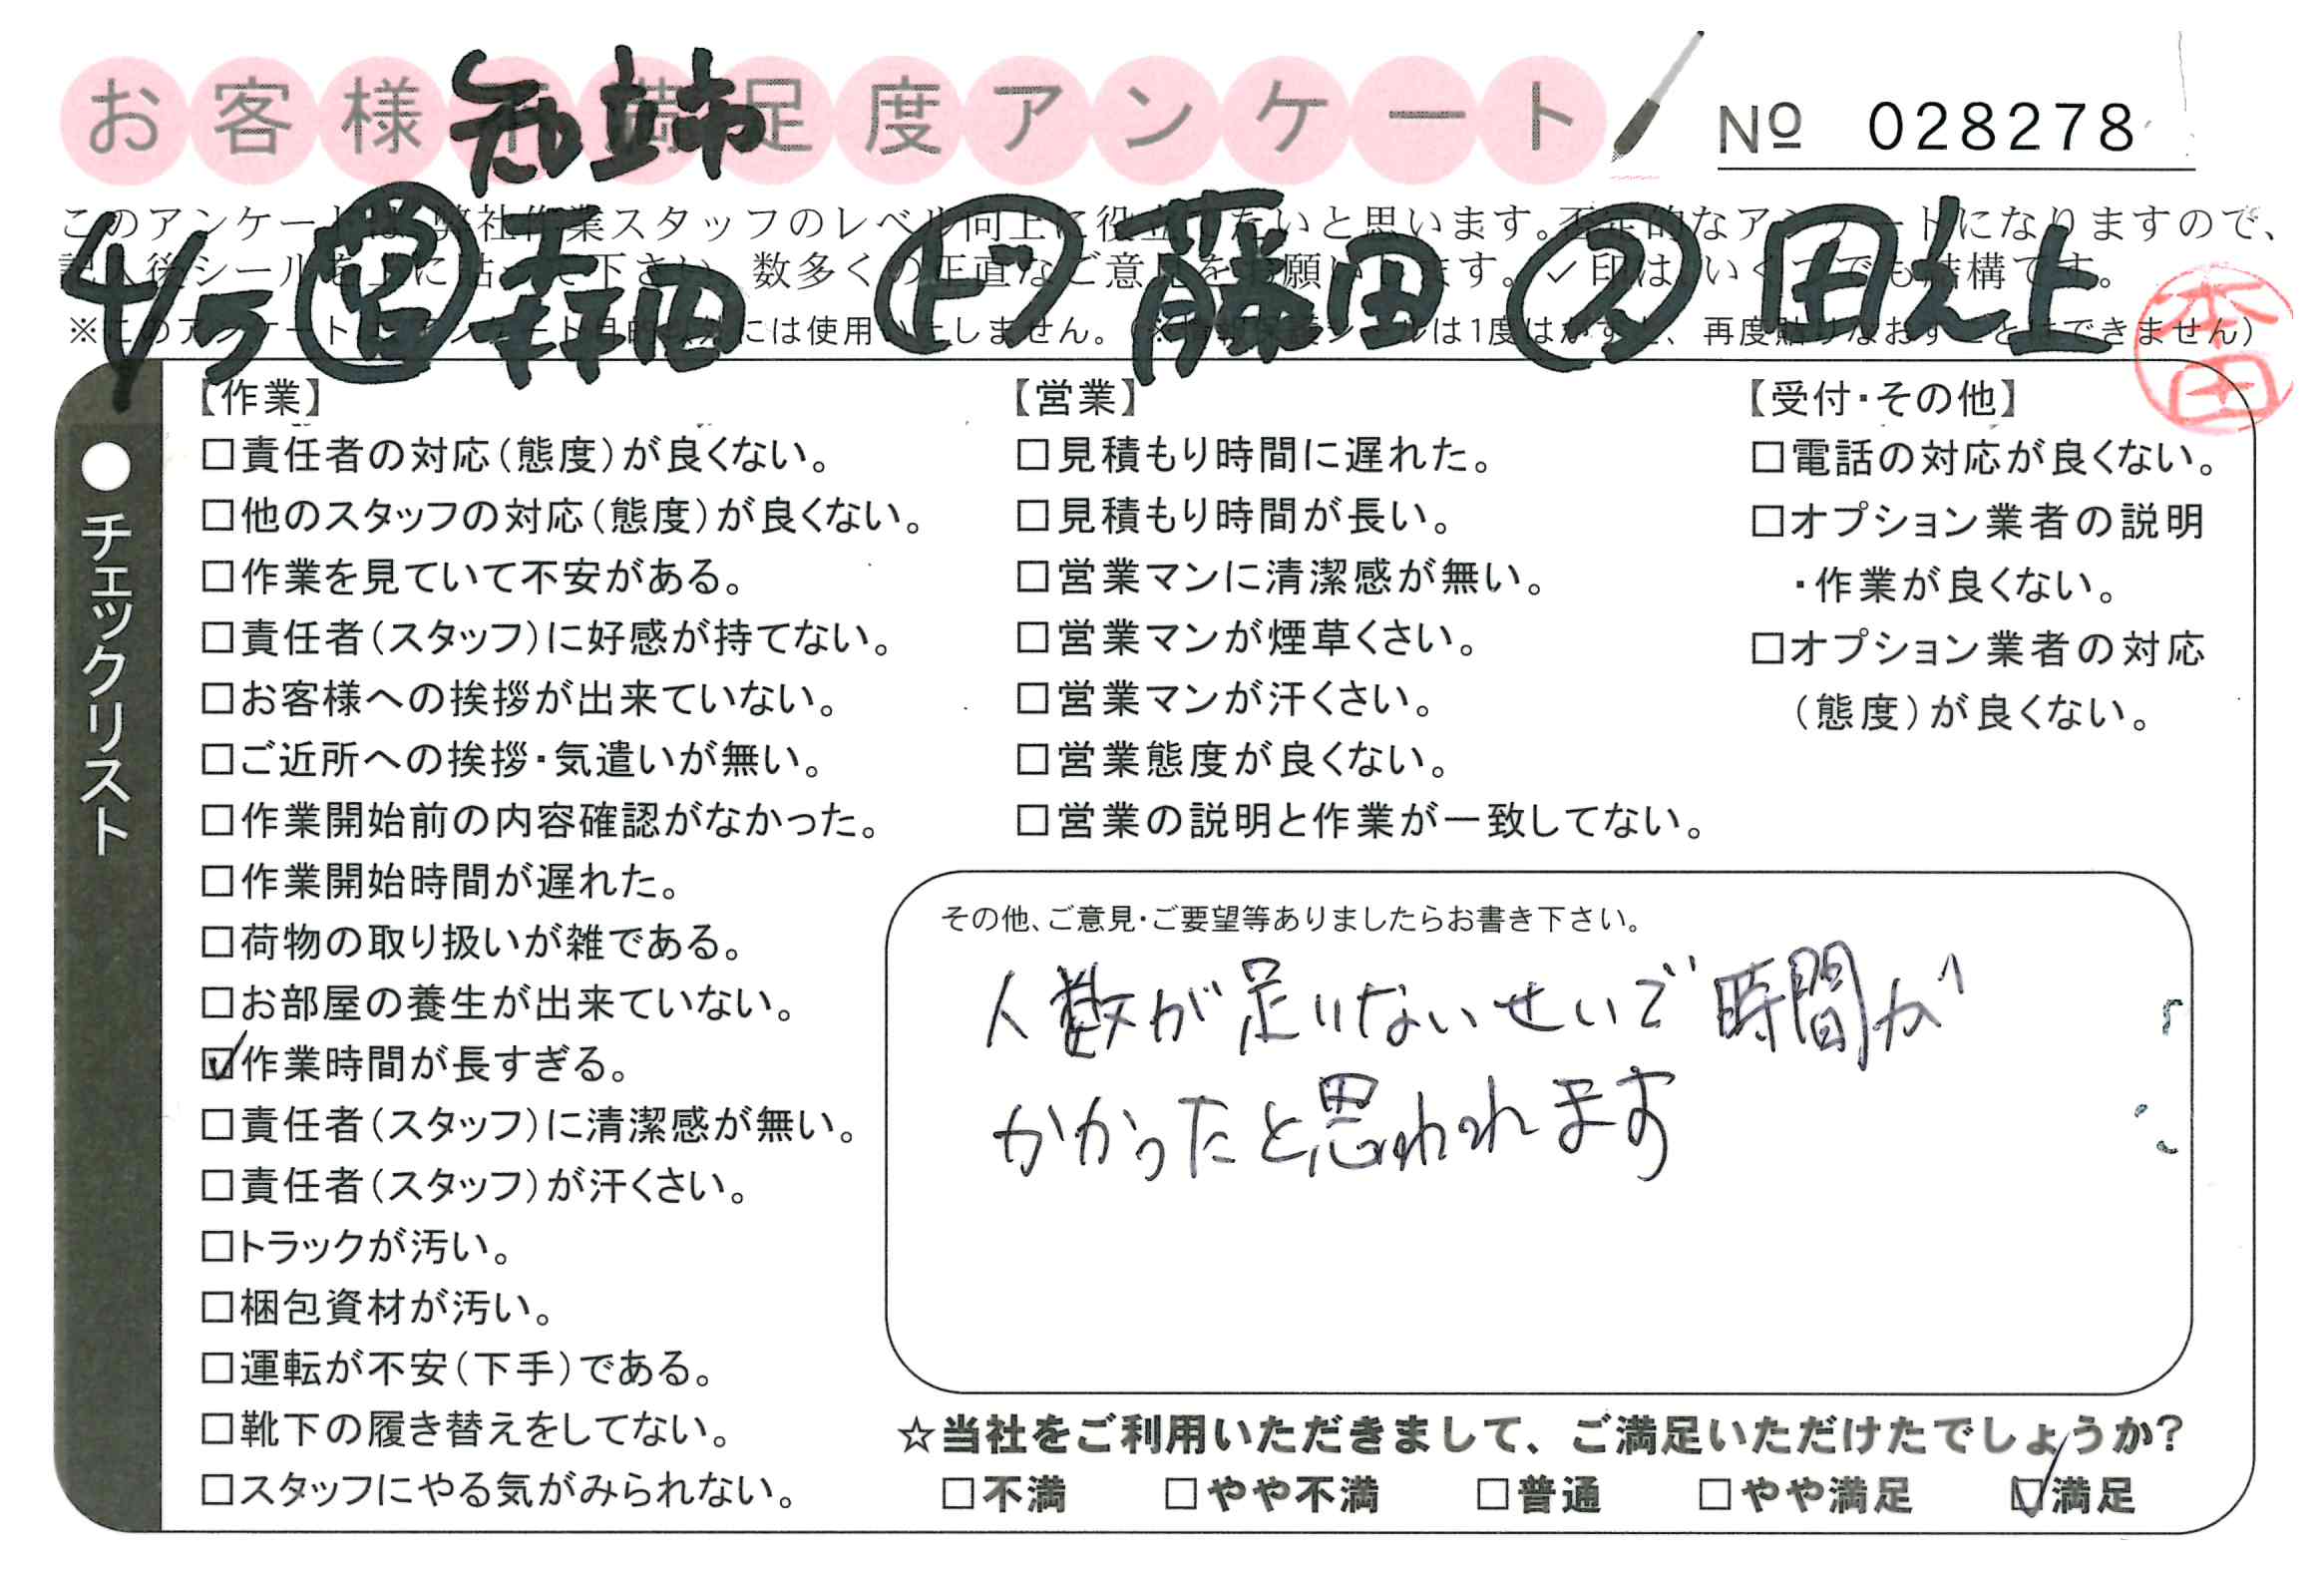 お客様不満足度アンケート
知立市
№ 028278
このアンケートは、弊社作業スタッフのレベル向上に役立てたいと思います。否定的なアンケートになりますので、
記入後シールを上に貼って下さい。数多くの正直なご意見をお願いします。✓印はいくつでも結構です。
4/5 営 森田 ド 藤田 ス 田之上
本田
チェックリスト
【作業】
□責任者の対応(態度)が良くない。
□他のスタッフの対応(態度)が良くない。
□作業を見ていて不安がある。
□責任者(スタッフ)に好感が持てない。
□お客様への挨拶が出来ていない。
□ご近所への挨拶・気遣いが無い。
□作業開始前の内容確認がなかった。
□作業開始時間が遅れた。
□荷物の取り扱いが雑である。
□お部屋の養生が出来ていない。
☑作業時間が長すぎる。
□責任者(スタッフ)に清潔感が無い。
□責任者(スタッフ)が汗くさい。
□トラックが汚い。
□梱包資材が汚い。
□運転が不安(下手)である。
□靴下の履き替えをしてない。
□スタッフにやる気がみられない。
【営業】
□見積もり時間に遅れた。
□見積もり時間が長い。
□営業マンに清潔感が無い。
□営業マンが煙草くさい。
□営業マンが汗くさい。
□営業態度が良くない。
□営業の説明と作業が一致してない。
【受付・その他】
□電話の対応が良くない。
□オプション業者の説明
・作業が良くない。
□オプション業者の対応
(態度)が良くない。
その他、ご意見・ご要望等ありましたらお書き下さい。
人数が足りないせいで時間が
かかったと思われます
☆当社をご利用いただきまして、ご満足いただけたでしょうか?
□不満 □やや不満 □普通 □やや満足 ☑満足